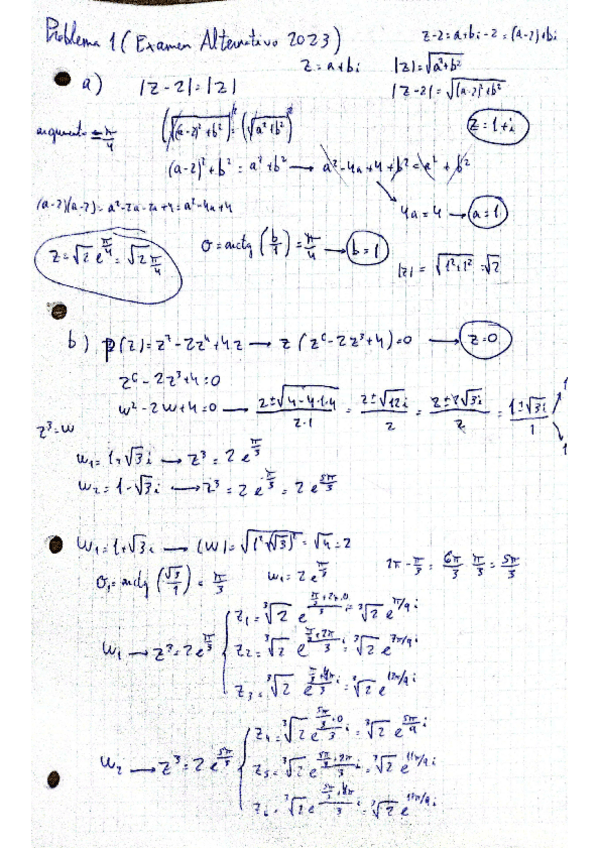 Problema 1 (Examen Alternativo 2023)
z-2 = a+bi-2 = (a-2)+bi
z = a+bi |z| = √(a²+b²)
a) |z-2| = |z| |z-2| = √((a-2)²+b²)
argumento = π/4 (√((a-2)²+b²))² = (√(a²+b²))² z = 1+i
(a-2)²+b² = a²+b² → a²-4a+4+b² = a²+b²
(a-2)(a-2) = a²-2a-2a+4 = a²-4a+4
4a = 4 → a = 1
z = √2 e^(π/4) = √2 π/4 σ = arctg (b/1) = π/4 → b = 1
|z| = √(1²+1²) = √2
b) p(z) = z⁷-2z⁴+4z → z(z⁶-2z³+4) = 0 → z = 0
z⁶-2z³+4 = 0
w²-2w+4 = 0 → (2±√(4-4·1·4))/(2·1) = (2±√12i)/2 = (2±2√3i)/2 = (1±√3i)/1
z³ = w
w₁ = 1+√3i → z³ = 2e^(π/3)
w₂ = 1-√3i → z³ = 2e^(-π/3) = 2e^(5π/3)
w₁ = 1+√3i → |w| = √(1²+(√3)²) = √4 = 2
σ₁ = arctg (√3/1) = π/3 w₁ = 2e^(π/3) 2π - π/3 = 6π/3 π/3 = 5π/3
z₁ = ³√2 e^((π/3+2π·0)/3 i) = ³√2 e^(π/9 i)
w₁ → z³ = 2e^(π/3) z₂ = ³√2 e^((π/3+2π)/3 i) = ³√2 e^(7π/9 i)
z₃ = ³√2 e^((π/3+4π)/3 i) = ³√2 e^(13π/9 i)
z₄ = ³√2 e^((5π/3+0)/3 i) = ³√2 e^(5π/9 i)
w₂ → z³ = 2e^(5π/3) z₅ = ³√2 e^((5π/3+2π)/3 i) = ³√2 e^(11π/9 i)
z₆ = ³√2 e^((5π/3+4π)/3 i) = ³√2 e^(17π/9 i)